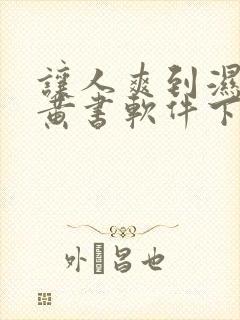 讓人爽到濕
黃書軟件下
外 昌也